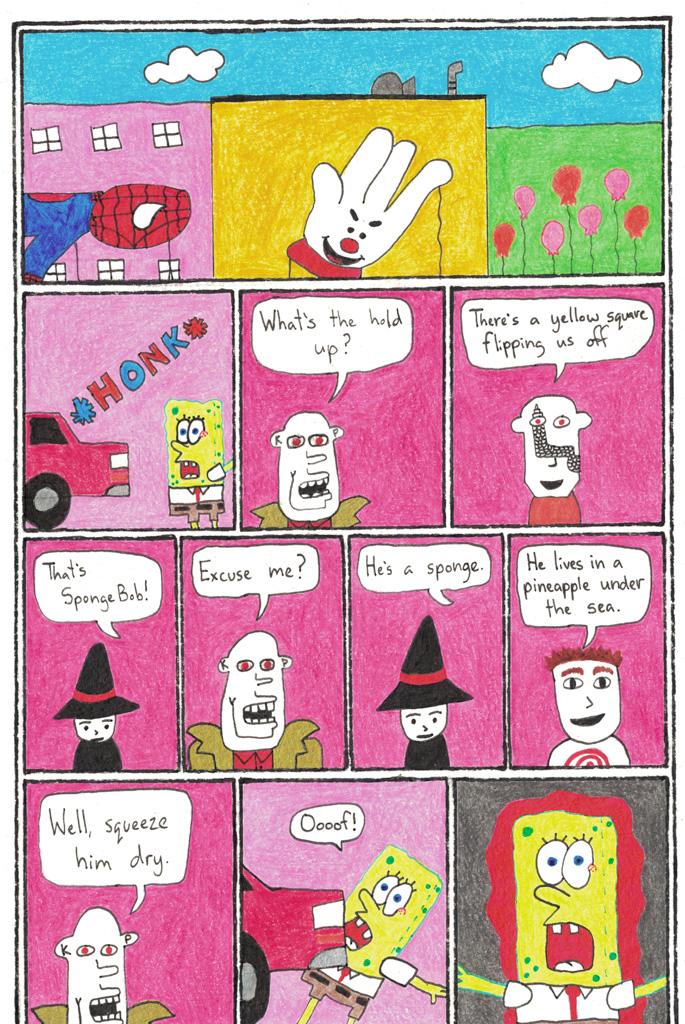 *HONK*
What's the hold
up?
There's a yellow square
flipping us off
K P
That's
SpongeBob!
Excuse me?
K P
He's a sponge.
He lives in a
pineapple under
the sea.
Well, squeeze
him dry.
K P
Oooof!